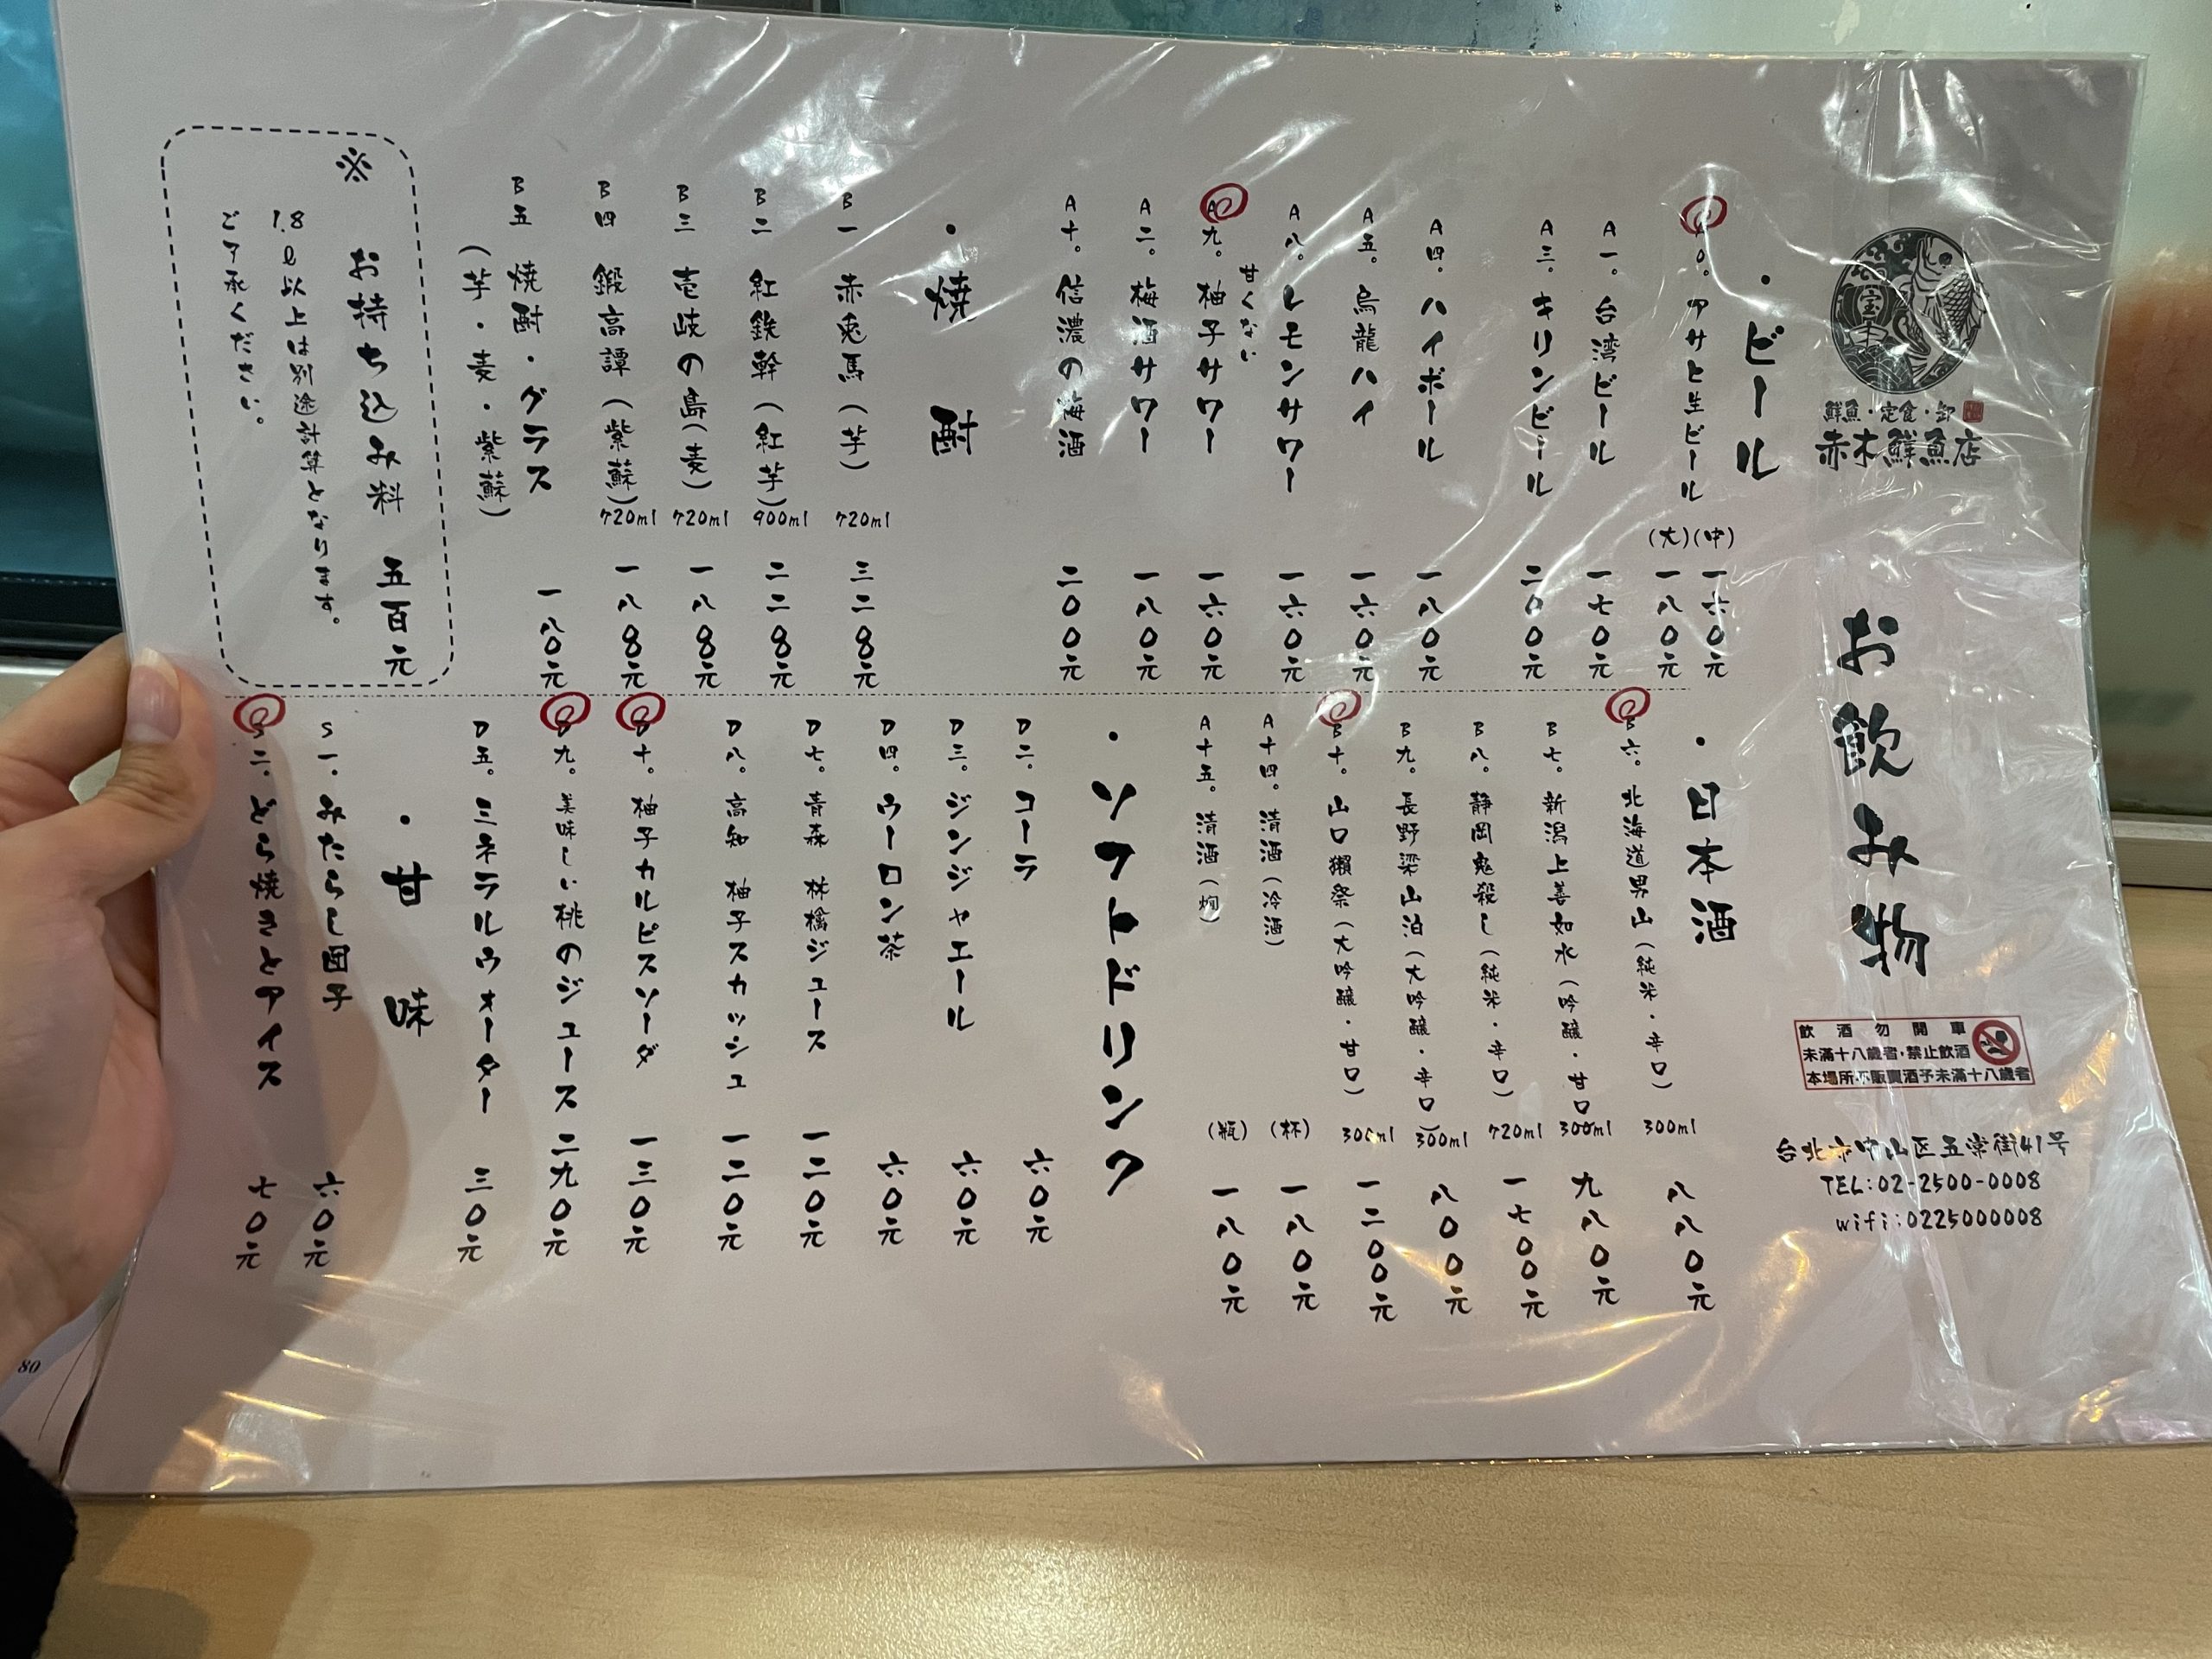 鮮魚・定食・卸
赤木鮮魚店
お飲み物
飲酒勿開車
未滿十八歲者・禁止飲酒
本場所不販賣酒予未滿十八歲者
台北市中山区五常街41号
TEL:02-2500-0008
wifi:0225000008
・ビール
〇。アサヒ生ビール (中) 一六〇元
(大) 一八〇元
A一。台湾ビール 一七〇元
A三。キリンビール 二〇〇元
A四。ハイボール 一八〇元
A五。烏龍ハイ 一六〇元
A八。レモンサワー 一六〇元
甘くない
A九。柚子サワー 一六〇元
A二。梅酒サワー 一八〇元
A十。信濃の梅酒 二〇〇元
・焼酎
B一 赤兎馬(芋) 720ml 三二八〇元
B二 紅鉄幹(紅芋) 900ml 二二八〇元
B三 壱岐の島(麦) 720ml 一八八〇元
B四 鍛高譚(紫蘇) 720ml 一八八〇元
B五 焼酎・グラス 一八〇元
(芋・麦・紫蘇)
※ お持ち込み料 五百元
1.8ℓ以上は別途計算となります。
ご了承ください。
・日本酒
B六。北海道男山(純米・辛口) 300ml 八八〇元
B七。新潟上善如水(吟醸・甘口) 300ml 九八〇元
B八。静岡鬼殺し(純米・辛口) 720ml 一七〇〇元
B九。長野梁山泊(大吟醸・辛口) 300ml 八〇〇元
B十。山口獺祭(大吟醸・甘口) 300ml 一二〇〇元
A十四。清酒(冷酒) (杯) 一八〇元
A十五。清酒(燗) (瓶) 一八〇元
・ソフトドリンク
D二。コーラ 六〇元
D三。ジンジャエール 六〇元
D四。ウーロン茶 六〇元
D七。青森 林檎ジュース 一二〇元
D八。高知 柚子スカッシュ 一二〇元
D十。柚子カルピスソーダ 一三〇元
D九。美味しい桃のジュース 二九〇元
D五。ミネラルウォーター 三〇元
・甘味
S一。みたらし団子 六〇元
S二。どら焼きとアイス 七〇元
80